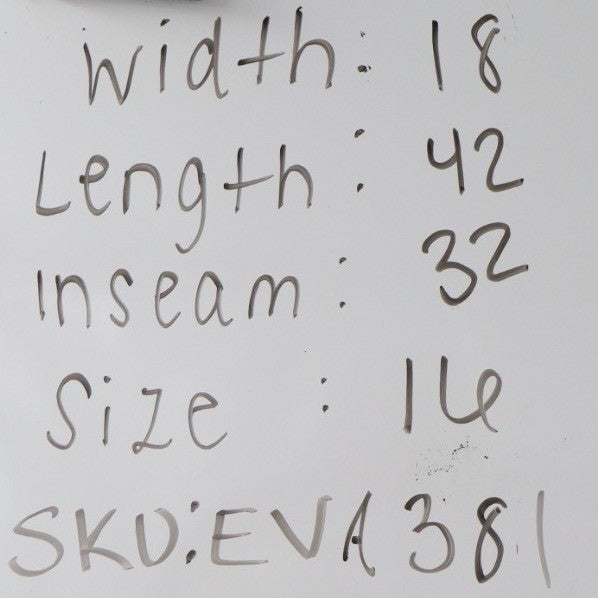 Width: 18
Length: 42
Inseam: 32
Size : 16
SKU:EVA381